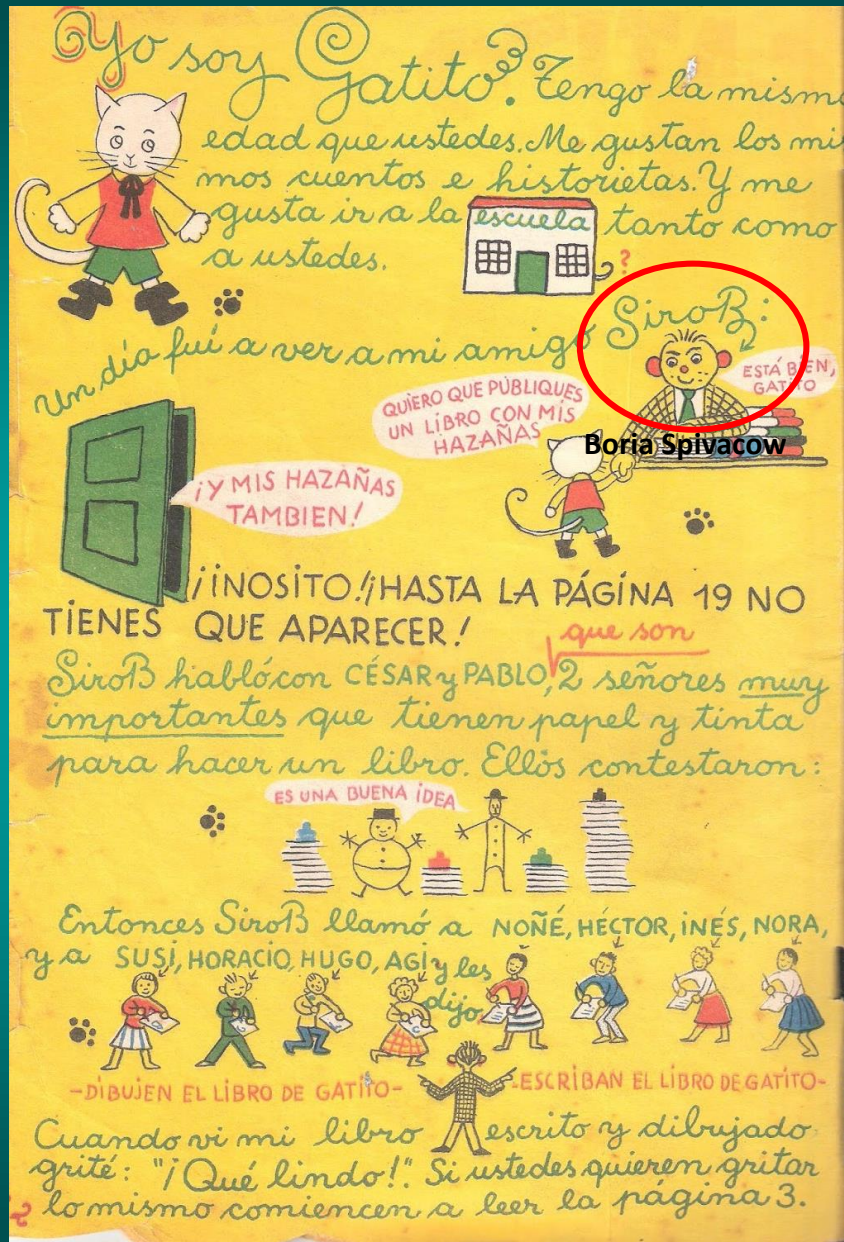 Yo soy Gatito. Tengo la misma
edad que ustedes. Me gustan los mis
mos cuentos e historietas. Y me
gusta ir a la escuela tanto como
a ustedes. ?
Un día fuí a ver a mi amigo SiroB:
ESTÁ BIEN,
GATITO
QUIERO QUE PÚBLIQUES
UN LIBRO CON MIS
HAZAÑAS
Boria Spivacow
¡Y MIS HAZAÑAS
TAMBIEN!
¡INOSITO!¡HASTA LA PÁGINA 19 NO
TIENES QUE APARECER!
que son
SiroB habló con CÉSAR y PABLO, 2 señores muy
importantes que tienen papel y tinta
para hacer un libro. Ellos contestaron:
ES UNA BUENA IDEA
Entonces SiroB llamó a NOÑÉ, HÉCTOR, INÉS, NORA,
y a SUSI, HORACIO, HUGO, AGI y les
dijo
-DIBUJEN EL LIBRO DE GATITO-
-ESCRIBAN EL LIBRO DE GATITO-
Cuando vi mi libro escrito y dibujado
grité: "¡Qué lindo!". Si ustedes quieren gritar
lo mismo comiencen a leer la página 3.
2